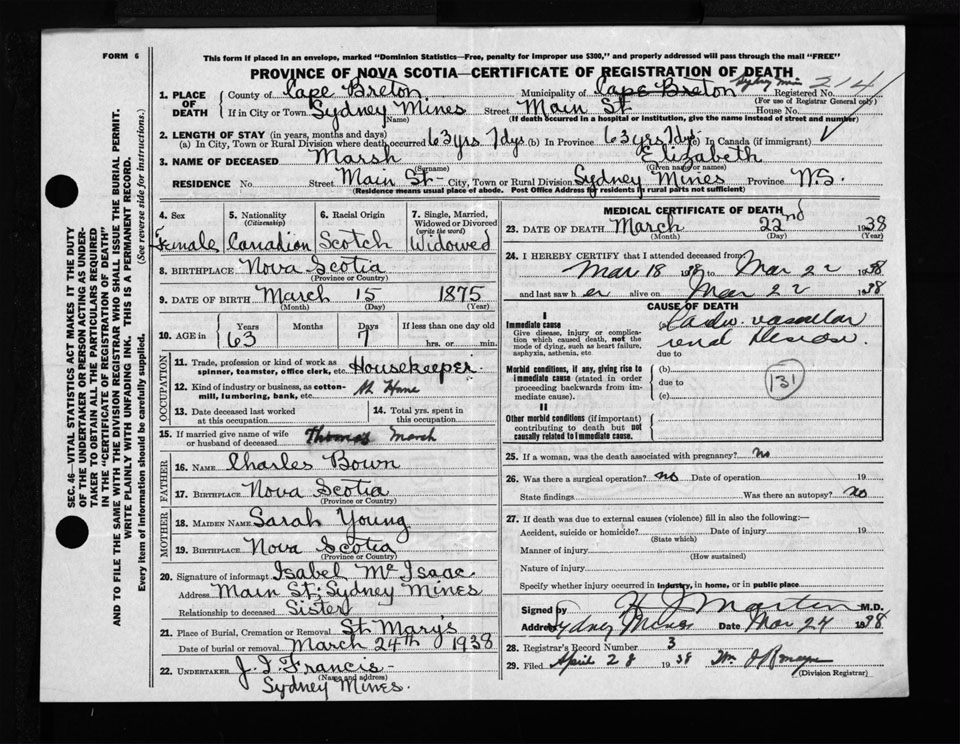 FORM 6
This form if placed in an envelope, marked "Dominion Statistics—Free, penalty for improper use $300," and properly addressed will pass through the mail "FREE"
PROVINCE OF NOVA SCOTIA—CERTIFICATE OF REGISTRATION OF DEATH
1. PLACE OF DEATH County of Cape Breton Municipality of Cape Breton Sydney Mines Registered No. 214
(For use of Registrar General only)
If in City or Town Sydney Mines Street Main St House No.
(Name) (If death occurred in a hospital or institution, give the name instead of street and number)
2. LENGTH OF STAY (in years, months and days)
(a) In City, Town or Rural Division where death occurred 63 yrs 7 dys (b) In Province 63 yrs 7 dys (c) In Canada (if immigrant)
3. NAME OF DECEASED Marsh Elizabeth
(Surname) (Given name or names)
RESIDENCE No. Street Main St- City, Town or Rural Division Sydney Mines Province N.S.
(Residence means usual place of abode. Post Office Address for residents in rural parts not sufficient)
4. Sex Female
5. Nationality (Citizenship) Canadian
6. Racial Origin Scotch
7. Single, Married, Widowed or Divorced (write the word) Widowed
8. BIRTHPLACE Nova Scotia
(Province or Country)
9. DATE OF BIRTH March 15 1875
(Month) (Day) (Year)
10. AGE in Years 63 Months Days 7 If less than one day
hrs. or min.
OCCUPATION
11. Trade, profession or kind of work as spinner, teamster, office clerk, etc. Housekeeper
12. Kind of industry or business, as cotton-mill, lumbering, bank, etc. At Home
13. Date deceased last worked at this occupation
14. Total yrs. spent in this occupation
15. If married give name of wife or husband of deceased Thomas March
FATHER
16. NAME Charles Bown
17. BIRTHPLACE Nova Scotia
(Province or Country)
MOTHER
18. MAIDEN NAME Sarah Young
19. BIRTHPLACE Nova Scotia
(Province or Country)
20. Signature of informant Isabel Mc Isaac
Address Main St; Sydney Mines
Relationship to deceased Sister
21. Place of Burial, Cremation or Removal St Mary's
Date of burial or removal March 24th 1938
22. UNDERTAKER J. I. Francis-
(Name and address)
Sydney Mines.
MEDICAL CERTIFICATE OF DEATH
23. DATE OF DEATH March 22nd 1938
(Month) (Day) (Year)
24. I HEREBY CERTIFY that I attended deceased from
Mar 18 1938 to Mar 22 1938
and last saw her alive on Mar 22 1938
CAUSE OF DEATH
I
Immediate cause
Give disease, injury or complication which caused death, not the mode of dying, such as heart failure, asphyxia, asthenia, etc
Cardio vascular
renal disease.
due to
Morbid conditions, if any, giving rise to immediate cause (stated in order proceeding backwards from immediate cause).
(b)
due to
(c)
131
II
Other morbid conditions (if important) contributing to death but not causally related to immediate cause.
25. If a woman, was the death associated with pregnancy? no
26. Was there a surgical operation? no Date of operation 19
State findings Was there an autopsy? no
27. If death was due to external causes (violence) fill in also the following:—
Accident, suicide or homicide? Date of injury 19
(State which)
Manner of injury
(How sustained)
Nature of injury
Specify whether injury occurred in industry, in home, or in public place
Signed by H J Martin M.D.
Address Sydney Mines Date Mar 24 1938
28. Registrar's Record Number 3
29. Filed April 28 1938 Wm
(Division Registrar)
SEC. 46—VITAL STATISTICS ACT MAKES IT THE DUTY
OF THE UNDERTAKER OR PERSON ACTING AS UNDER-
TAKER TO OBTAIN ALL THE PARTICULARS REQUIRED
IN THE "CERTIFICATE OF REGISTRATION OF DEATH"
AND TO FILE THE SAME WITH THE DIVISION REGISTRAR WHO SHALL ISSUE THE BURIAL PERMIT.
WRITE PLAINLY WITH UNFADING INK. THIS IS A PERMANENT RECORD.
Every item of information should be carefully supplied. (See reverse side for instructions.)